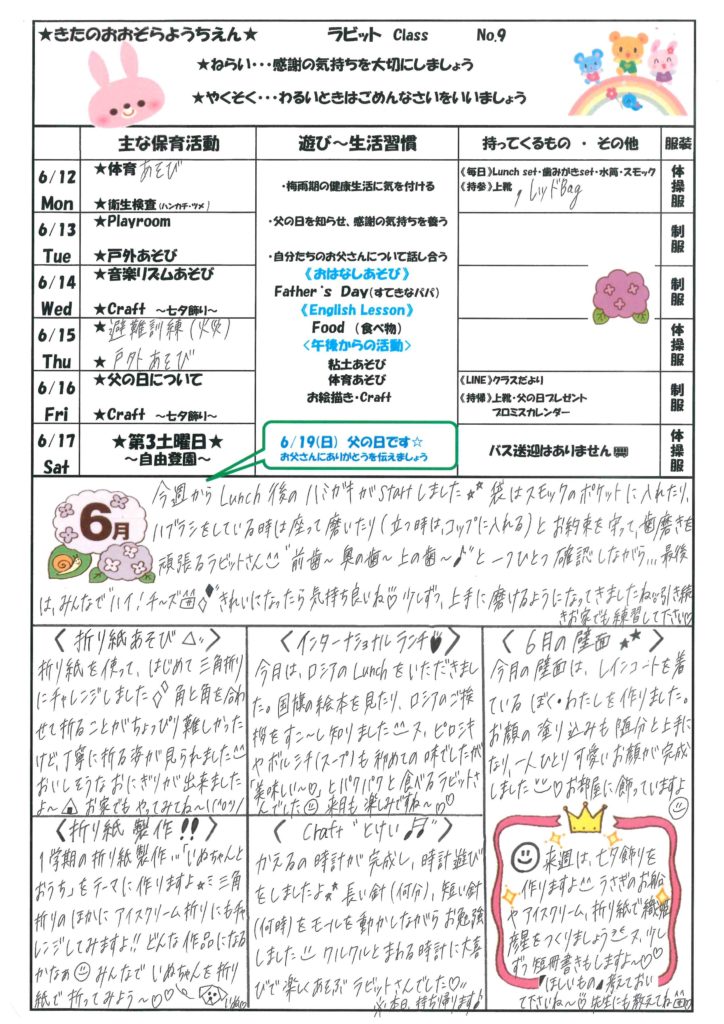 ★きたのおおぞらようちえん★ ラビット Class No.9
★ねらい・・・感謝の気持ちを大切にしましょう
★やくそく・・・わるいときはごめんなさいをいいましょう
主な保育活動 遊び～生活習慣 持ってくるもの ・ その他 服装
6/12 Mon
★体育あそび
★衛生検査(ハンカチ・ツメ)
6/13 Tue
★Playroom
★戸外あそび
6/14 Wed
★音楽リズムあそび
★Craft ～七夕飾り～
6/15 Thu
★避難訓練(火災)
★戸外あそび
6/16 Fri
★父の日について
★Craft ～七夕飾り～
6/17 Sat
★第3土曜日★
～自由登園～
・梅雨期の健康生活に気を付ける
・父の日を知らせ、感謝の気持ちを養う
・自分たちのお父さんについて話し合う
《おはなしあそび》
Father's Day(すてきなパパ)
《English Lesson》
Food (食べ物)
<午後からの活動>
粘土あそび
体育あそび
お絵描き・Craft
6/19(日) 父の日です☆
お父さんにありがとうを伝えましょう
《毎日》Lunch set・歯みがきset・水筒・スモック
《持参》上靴, レッドBag
《LINE》クラスだより
《持帰》上靴・父の日プレゼント
プロミスカレンダー
バス送迎はありません
体操服
制服
制服
体操服
制服
体操服
6月
今週からLunch後のハミガキがstartしました 袋はスモックのポケットに入れたり、
ハブラシをしている時は座って磨いたり(立つ時は、コップに入れる)とお約束を守って、歯磨きを
頑張るラビットさん "前歯～奥の歯～上の歯～♪"と一つひとつ確認しながら... 最後
は、みんなでハイ!チーズ きれいになったら気持ち良いね♡少しずつ、上手に磨けるようになってきましたね 引き続き
お家でも練習して下さい♡
〈折り紙あそび△〉
折り紙を使って、はじめて三角折り
にチャレンジしました 角と角を合わ
せて折ることがちょっぴり難しかった
けど、丁寧に折る姿が見られました
おいしそうなおにぎりが出来ました
よ～ お家でもやってみてね～!
〈インターナショナルランチ♥〉
今日は、ロシアのLunchをいただきまし
た。国旗の絵本を見たり、ロシアのご挨
拶をすこ～し知りました ス、ピロシキ
やボルシチ(スープ)も初めての味でしたが
「美味しい～♡」とパクパクと食べるラビットさ
んでした 来月も楽しみだね～♡
〈6月の壁面〉
今月の壁面は、レインコートを着
ているぼく・わたしを作りました。
お顔の塗り込みも随分と上手に
なり、一人ひとり可愛いお顔が完成
しました♡お部屋に飾っていますよ
〈折り紙製作!!〉
1学期の折り紙製作...「いぬちゃんと
おうち」をテーマに作りますよ 三角
折りのほかにアイスクリーム折りにもチャ
レンジしてみますよ!! どんな作品になる
かなぁ みんなでいぬちゃんを折り
紙で折ってみよう～♡♡
〈Craft "とけい♫"〉
かえるの時計が完成し、時計遊び
をしましたよ 長い針(何分)、短い針
(何時)をモールを動かしながらお勉強
しました クルクルとまわる時計に大喜
びで楽しくあそぶラビットさんでした♡
※本日、持ち帰ります♪
来週は、七夕飾りを
作りますよ うさぎのお船
やアイスクリーム、折り紙で織姫
彦星をつくりましょう ス、少し
ずつ短冊書きもしますよ～♡
「ほしいもの」考えておい
て下さいね～♡先生にも教えてね